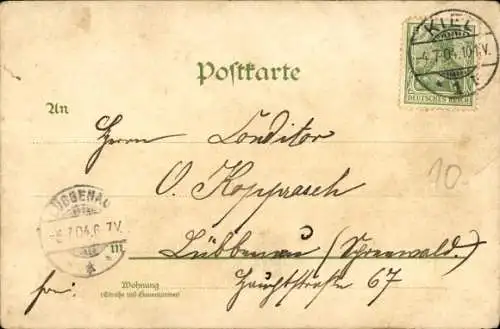 KIEL
-4.7.04.10-11V.
* 1 f
DEUTSCHES REICH
Postkarte
An
Herrn Conditor
O. Kopprasch
10.-
LÜBBENAU
-5.7.04.6-7V.
*
in
Lübbenau (Spreewald.)
Wohnung
(Straße und Hausnummer)
Hauptstraße 67